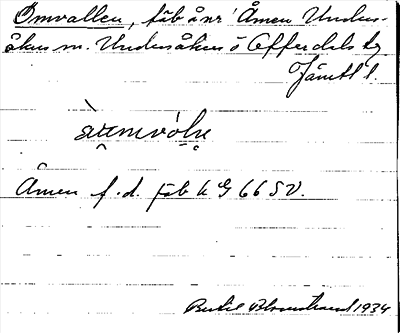 Ömvallen, fäb å nr 1 Åmen Unders-
åkers m. Undersåkers o Offerdals tg
Jämtl l.
Åmen f.d. fäb k G 66 SV.
Bertil Blomstrand 1934